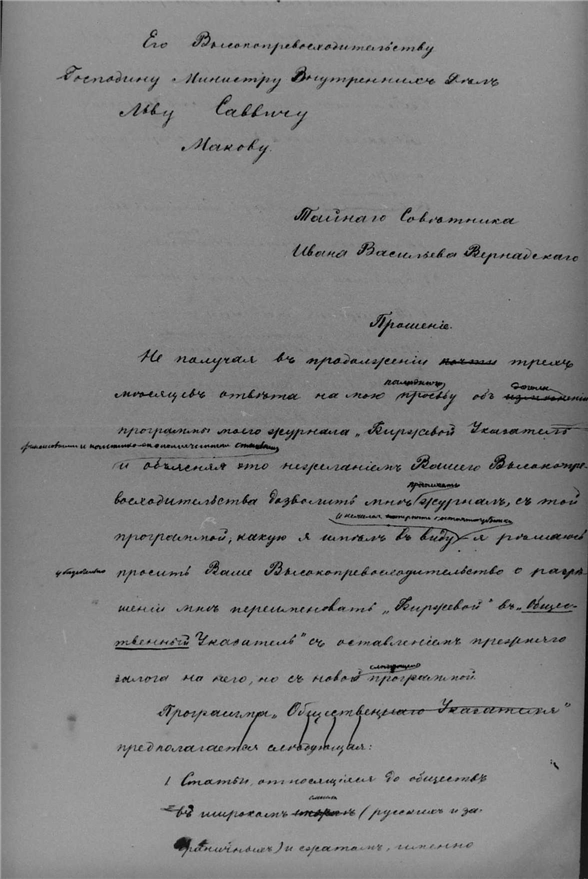 Его Высокопревосходительству
Господину Министру Внутреннихъ Дѣлъ
Льву Саввичу
Макову.
Тайнаго Совѣтника
Ивана Васильева Вернадскаго
Прошеніе.
Не получая въ продолженіи почти трехъ
мѣсяцевъ отвѣта на мою просьбу объ измѣненіи
программы моего журнала „Биржевой Указатель"
и объясняя это нежеланіемъ Вашего Высокопре-
восходительства дозволить мнѣ журналъ, съ той
программой, какую я имѣлъ въ виду, я рѣшаюсь
убѣдительно
просить Ваше Высокопревосходительство о разрѣ-
шеніи мнѣ переименовать „Биржевой" въ „Общес-
твенный Указатель" съ оставленіемъ прежняго
залога на него, но съ новой программой
Программа „Общественнаго Указателя"
предполагается слѣдующая:
1 Статьи, относящіяся до обществъ
въ широкомъ смыслѣ (русскихъ и за-
граничныхъ) и сжатомъ, именно